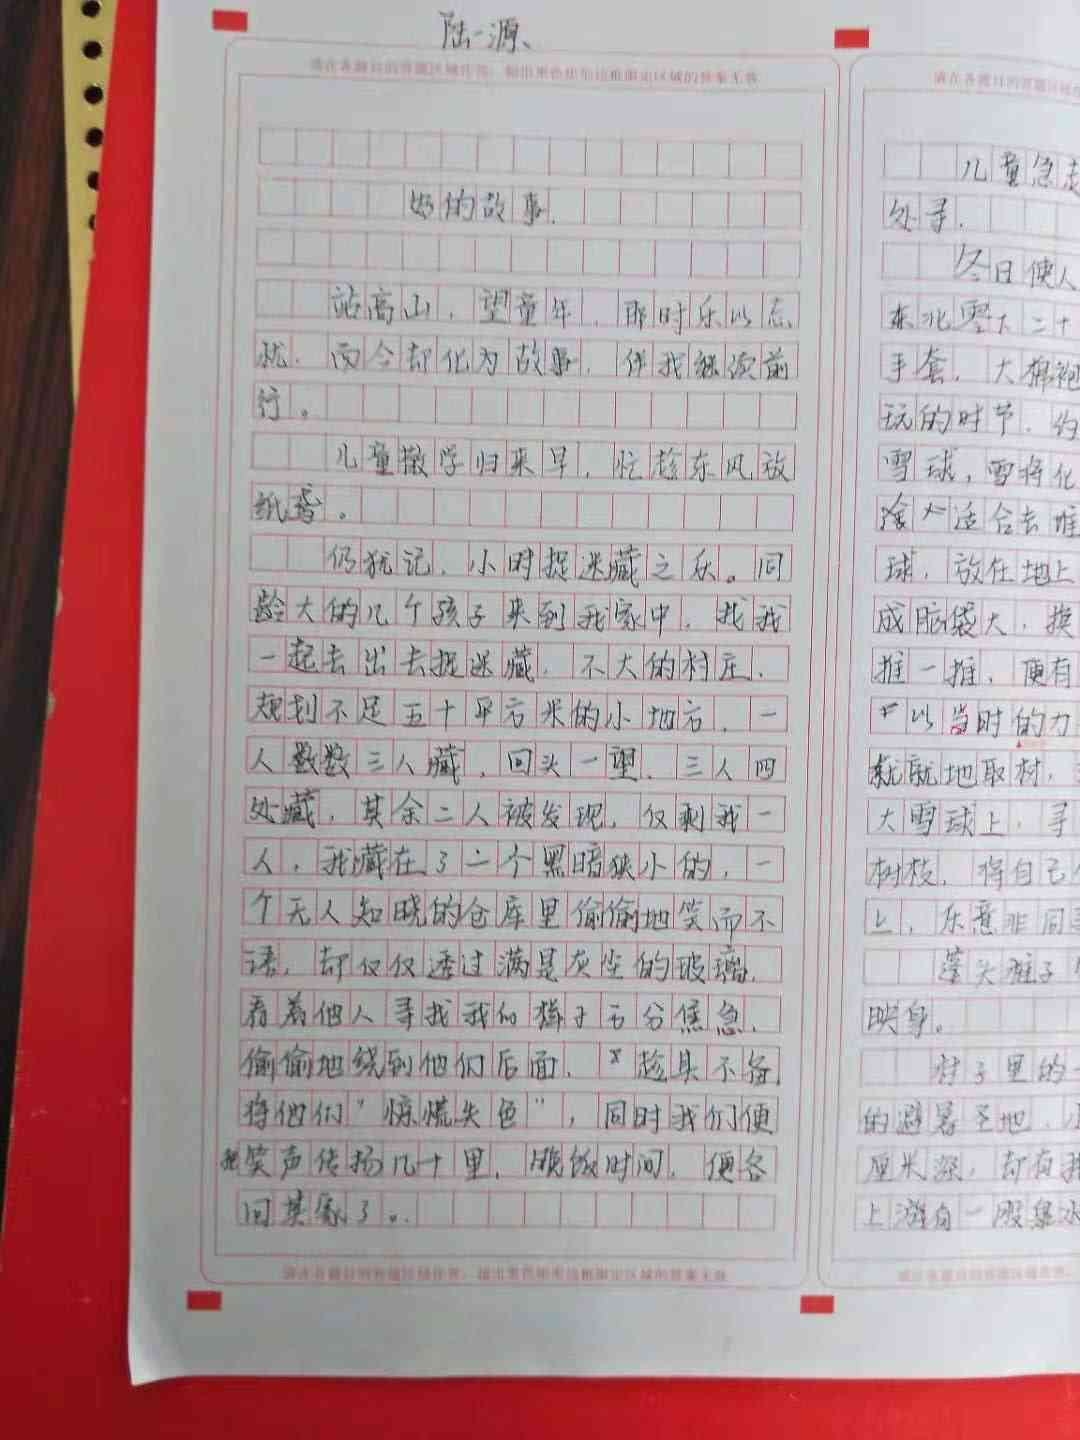 陆一源、
请在各题目的答题区域作答，超出黑色矩形边框限定区域的答案无效
的故事.
站高山，望童年，那时乐以忘
忧，而今却化为故事，伴我继续前
行。
儿童散学归来早，忙趁东风放
纸鸢。
仍犹记，小时捉迷藏之乐。同
龄大的几个孩子来到我家中，找我
一起去出去捉迷藏，不大的村庄，
规划不足五十平方米的小地方，一
人数数三人藏，回头一望，三人四
处藏，其余二人被发现，仅剩我一
人，我藏在了一个黑暗狭小的，一
个无人知晓的仓库里偷偷地笑而不
语，却仅仅透过满是灰尘的玻璃，
看着他人寻找我的样子万分焦急，
偷偷地绕到他们后面，趁其不备，
将他们"惊慌失色"，同时我们便
把笑声传扬几十里，晚饭时间，便各
回其家了。
请在各题目的答题区域作答，超出黑色矩形边框限定区域的答案无效
请在各题目的答题区域
儿童急走
处寻.
冬日使人
东北零大二十
手套，大棉袍
玩的时节，约
雪球，雪将化
适合去堆
球，放在地上
成脑袋大，换
推一推，便有
以当时的力
就就地取材，
大雪球上，寻
树枝，将自己
上，乐意非同
蓬头稚子
映身。
村子里的
的避暑圣地，
厘米深，却有我
上游有一股泉水
请在各题目的答题区域作答，